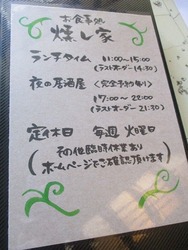 お食事処
燻し家
ランチタイム 11:00〜15:00
(ラストオーダー14:30)
夜の居酒屋 〈完全予約制〉
17:00〜22:00
(ラストオーダー21:30)
定休日 毎週火曜日
(その他臨時休業あり
ホームページをご確認頂けます)